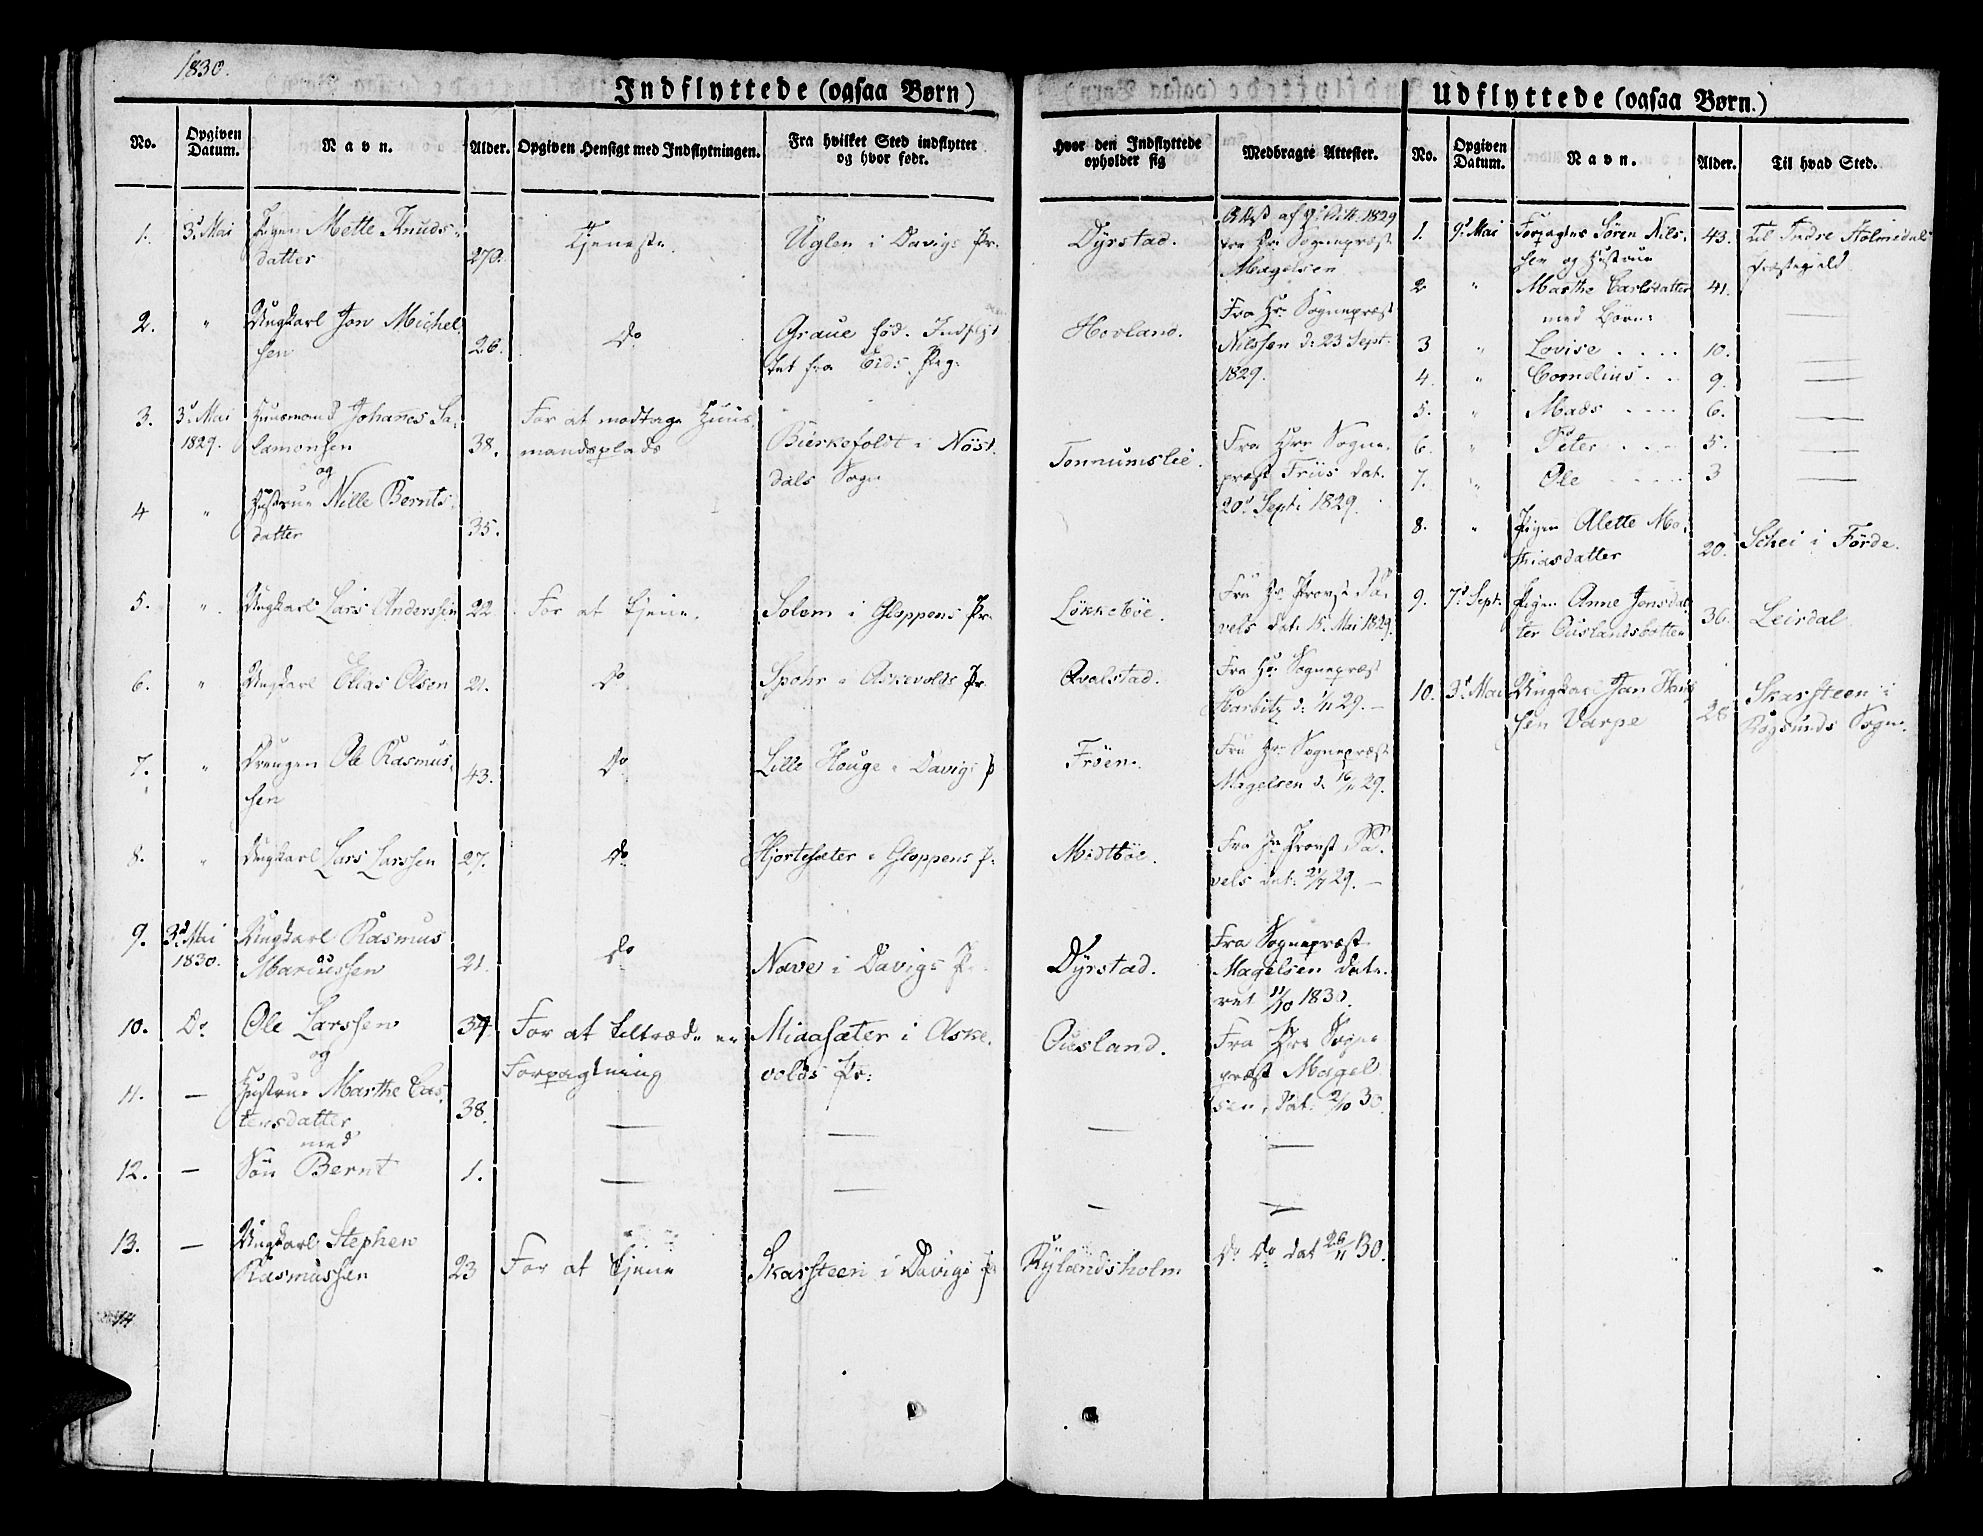 1830.
Indflyttede (ogsaa Børn)
No.
Opgiven Datum.
Navn.
Alder.
Opgiven Hensigt med Indflytningen.
Fra hvilket Sted indflyttet og hvor født.
Hvor den Indflyttede opholder sig
Medbragte Attester.
1. 3d Mai Pigen Mette Knuds-
datter 27 Tjeneste Uglen i Davigs Pr. Dyrstad.
fra Hr. Sognepræst
Magelsen
2. " Ungkarl Jon Michel
sen 26. Do Graue fød. Indflyt
tet fra Eids Prg. Hovland. Fra Hr. Sognepræst
Nilssen d. 23 Sept.
1829.
3. 3d Mai 1829. Huusmand Johanes Sa-
lamonsen 38. For at modtage Huus
mandsplads
og
Bierkefoldt i Nøst
dals Sogn Tonnumslie. Fra Hr. Sogne-
præst Friis dat.
20d Sept. 1829.
4 " Hustrue Nille Bernts-
datter 35.
5. " Ungkarl Lars Anderssen 22 For at tjene. Solem i Gloppens Pr. Løkkebøe. Fra Hr. Provst Da-
vels dat. 15. Mai 1829.
6. " Ungkarl Elias Olsen 21. Do Spohr i Askevolds Pr. Qvalstad. Fra Hr. Sognepræst
Harbitz d. 1/11 29.
7. " Drengen Ole Rasmus-
sen 43. Do Lille Houge i Davigs P Frøen. Fra Hr. Sognepræst
Magelsen d. 16/11 29.
8. " Ungkarl Lars Larssen 27. Do Hjortesæter i Gloppens P. Midtbøe. Fra Hr. Provst Da-
vels dat. 21/7 29.
9. 3d Mai 1830. Ungkarl Rasmus
Mariussen 21. Do Nave i Davigs Pr. Dyrstad. Fra Sognepræst
Magelsen date-
ret 11/10 1830.
10. Do Ole Larssen 34 For at tiltræde en
Forpagtning
og
Midasæter i Aske-
volds Pr. Ousland. Fra Hr. Sogne
præst Magel
sen, dat. 2/10 30.
11. — Hustrue Marthe Cas-
tensdatter 38. — — — —
med
12. — Søn Bernt 1. — — — —
13. — Ungkarl Stephen
Rasmussen 23 For at tjene Skarsteen i Davigs P Rylandsholm Do Do dat 26/11 30.
14
Udflyttede (ogsaa Børn.)
No.
Opgiven Datum.
Navn.
Alder.
Til hvad Sted.
1. 9d Mai Forpagter Søren Nils-
sen og Hustrue 43. Til Indre Holmedals
Præstegield
2 " Marthe Carlsdatter 41. —
med Børn:
3 " Lovise 10. —
4. " Cornelius 9. —
5. " Mads 6. —
6. " Peter 5. —
7. " Ole 3 —
8. " Pigen Alette Ma-
thiasdatter 20. Schei i Førde.
9. 7d Sept. Pigen Anne Jonsdat-
ter Ouslandsbotten 36. Leirdal
10. 3d Mai Ungkarl Jan
sen Varpe 28 Skarsteen i
Rogsunds Sogn.